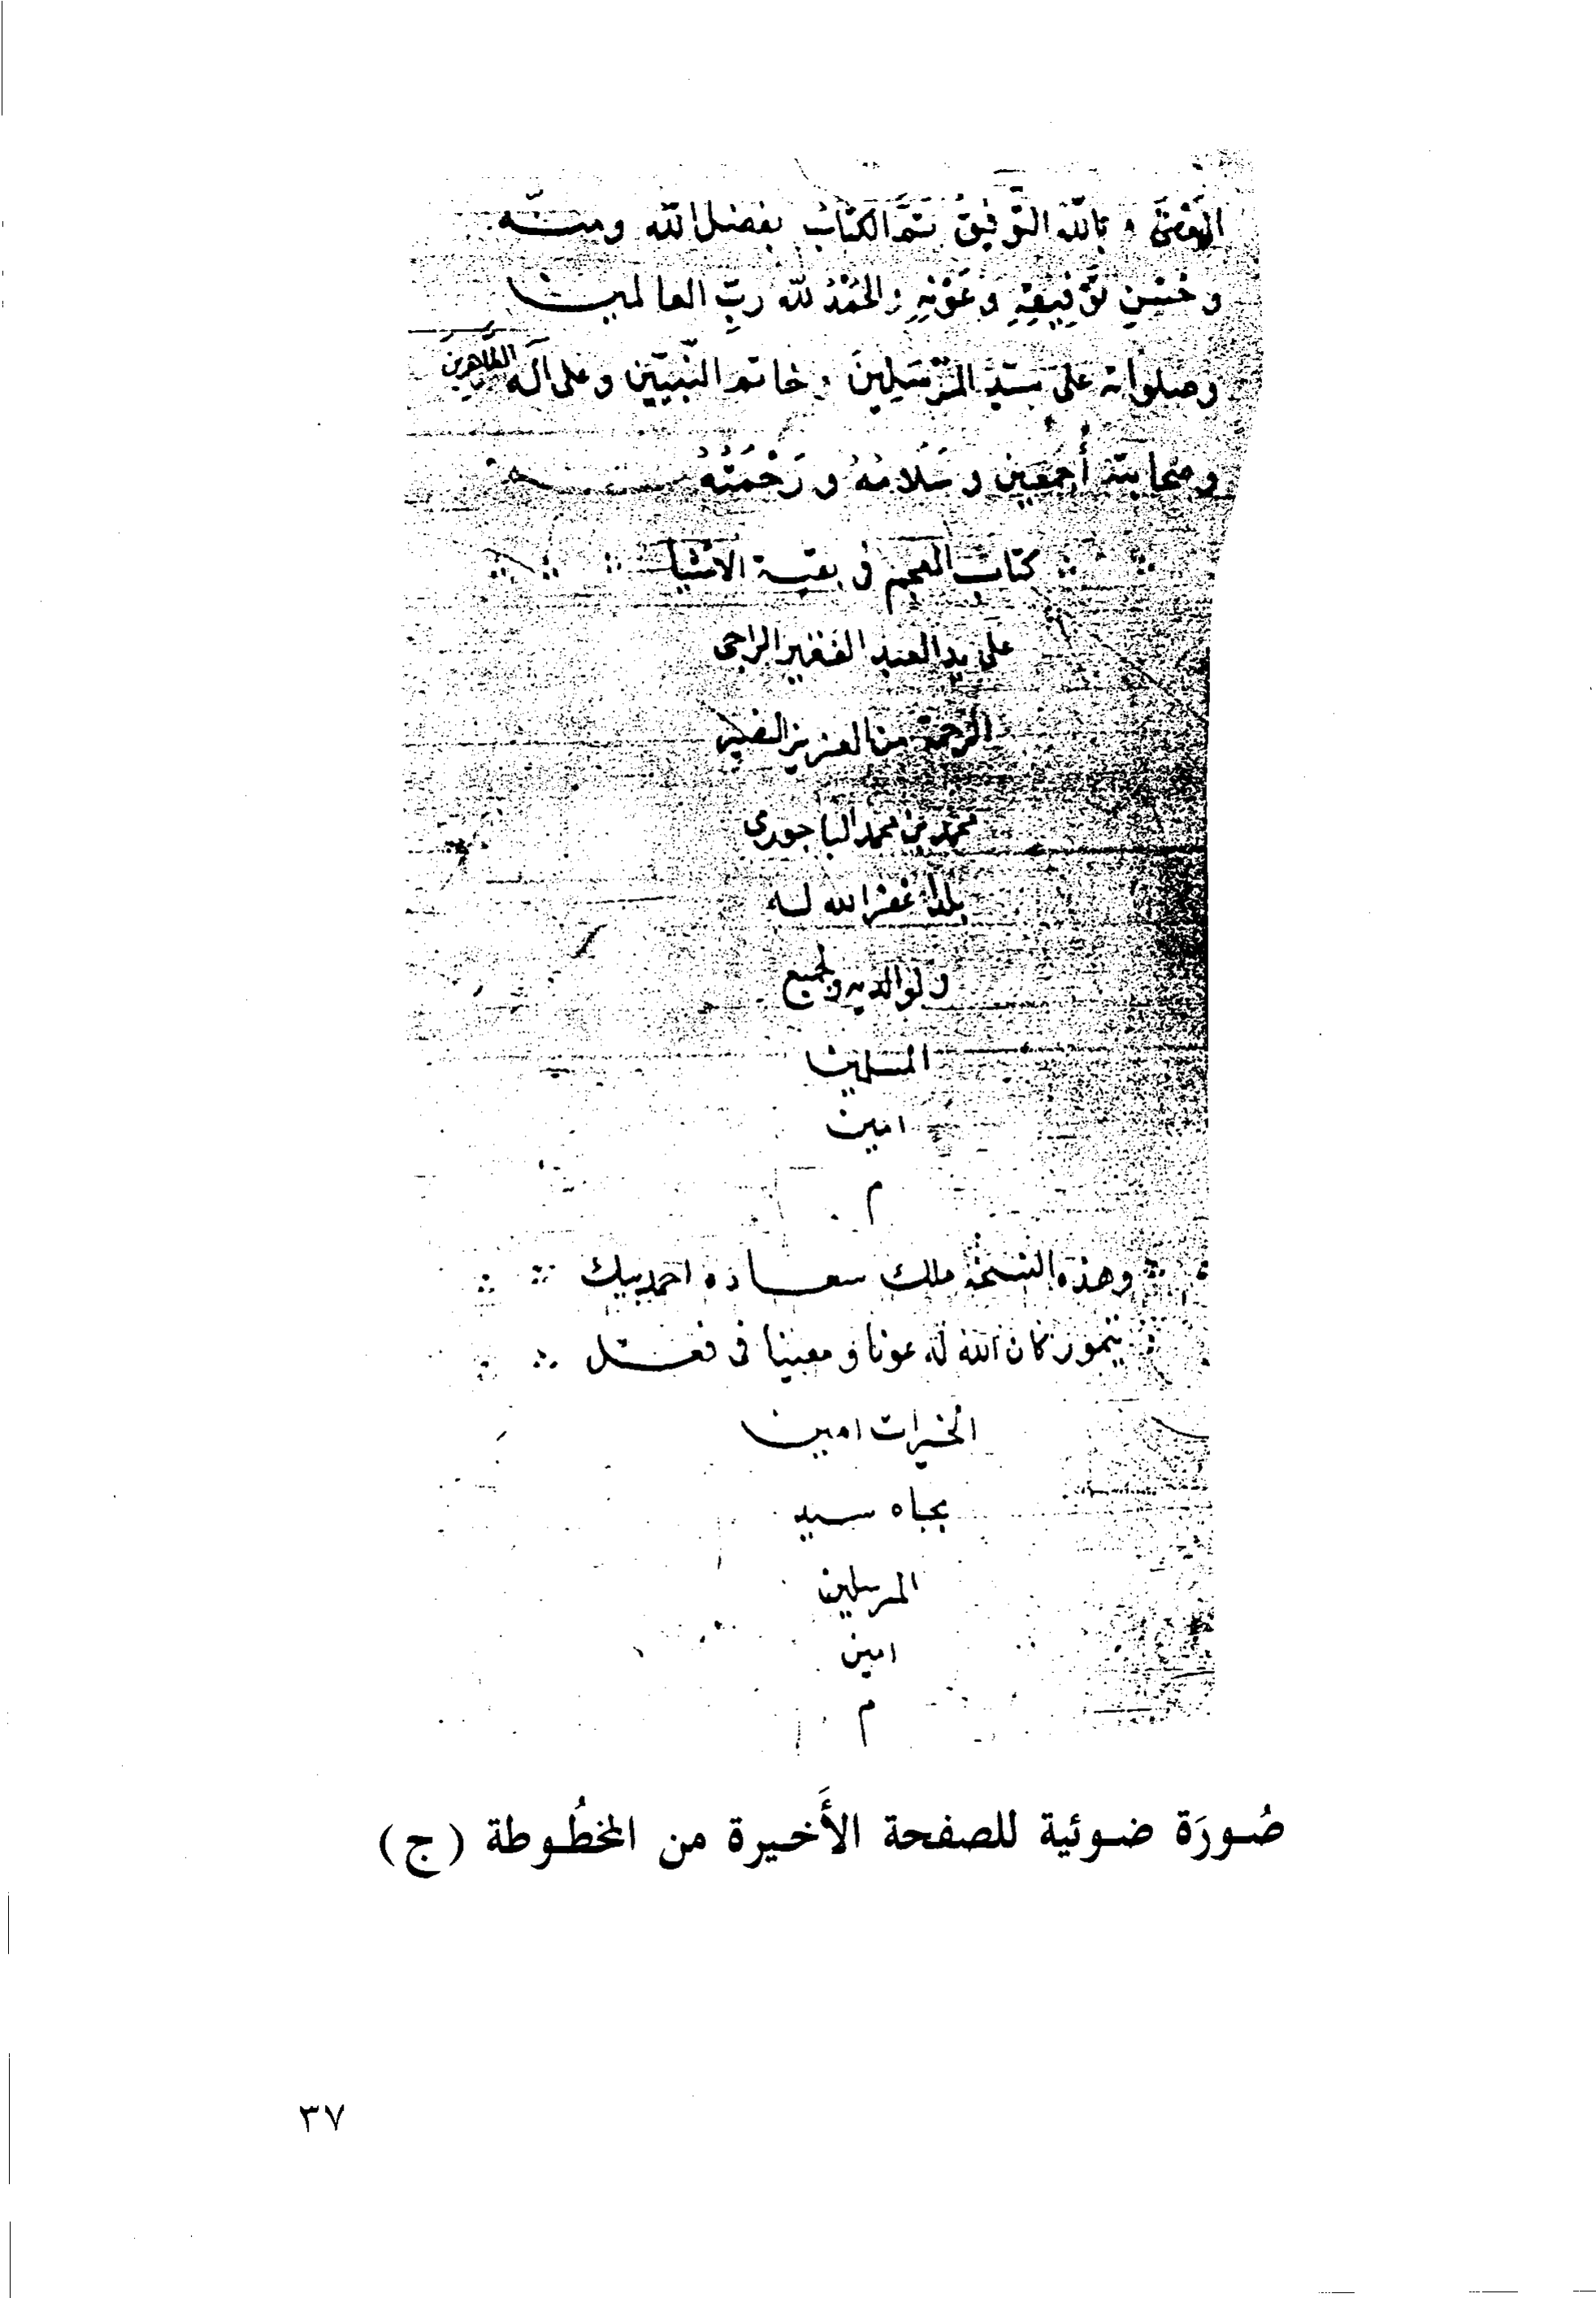 وبالله التوفيق تَمَّ الكتابُ بفضل الله ومنّه
وحُسْنِ تَوْفِيقِهِ وَعَوْنِهِ والحَمْدُ لله ربِّ العالمين
وصلواته على سيّد المُرْسَلِينَ وخاتم النّبيّين وعلى آله الطاهرين
وصحابته أَجمَعين وسَلَامُهُ ورَحْمَتُهُ
كتاب المعجم فى بقية الاشيا
على يد العبد الفقير الراجى
الرحمة من العزيز
محمد بن محمد الباجورى
بلدا غفر الله له
ولوالديه ولجميع
المسلمين
امين
م
وهذه النسخة ملك سعاده احمد بيك
تيمور كان الله له عونا ومعينا فى فعل
الخيرات امين
بجاه سيد
المرسلين
امين
م
صُورَة ضوئية للصفحة الأَخيرة من المخطُوطة (ج)
٣٧